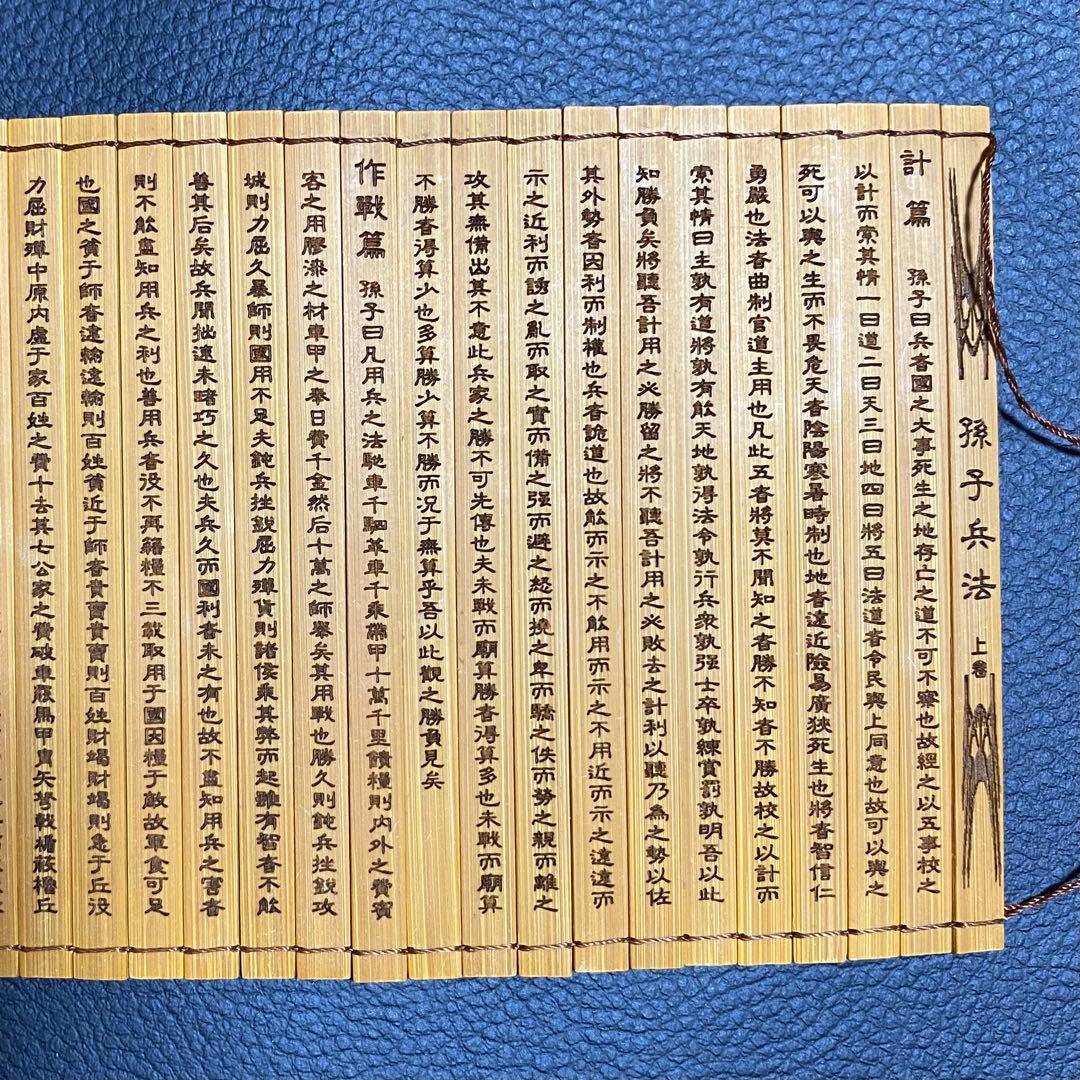 孫子兵法 上卷
計篇 孫子曰兵者國之大事死生之地存亡之道不可不察也故經之以五事校之
以計而索其情一曰道二曰天三曰地四曰將五曰法道者令民與上同意也故可以與之
死可以與之生而不畏危天者陰陽寒暑時制也地者遠近險易廣狹死生也將者智信仁
勇嚴也法者曲制官道主用也凡此五者將莫不聞知之者勝不知者不勝故校之以計而
索其情曰主孰有道將孰有能天地孰得法令孰行兵衆孰强士卒孰練賞罰孰明吾以此
知勝負矣將聽吾計用之必勝留之將不聽吾計用之必敗去之計利以聽乃為之勢以佐
其外勢者因利而制權也兵者詭道也故能而示之不能用而示之不用近而示之遠遠而
示之近利而誘之亂而取之實而備之强而避之怒而撓之卑而驕之佚而勞之親而離之
攻其無備出其不意此兵家之勝不可先傳也夫未戰而廟算勝者得算多也未戰而廟算
不勝者得算少也多算勝少算不勝而况于無算乎吾以此觀之勝負見矣
作戰篇 孫子曰凡用兵之法馳車千駟革車千乘帶甲十萬千里饋糧則内外之費賓
客之用膠漆之材車甲之奉日費千金然后十萬之師舉矣其用戰也勝久則鈍兵挫銳攻
城則力屈久暴師則國用不足夫鈍兵挫銳屈力殫貨則諸侯乘其弊而起雖有智者不能
善其后矣故兵聞拙速未睹巧之久也夫兵久而國利者未之有也故不盡知用兵之害者
則不能盡知用兵之利也善用兵者役不再籍糧不三載取用于國因糧于敵故軍食可足
也國之貧于師者遠輸遠輸則百姓貧近于師者貴賣貴賣則百姓財竭財竭則急于丘役
力屈財殫中原内虛于家百姓之費十去其七公家之費破車罷馬甲胄矢弩戟楯蔽櫓丘